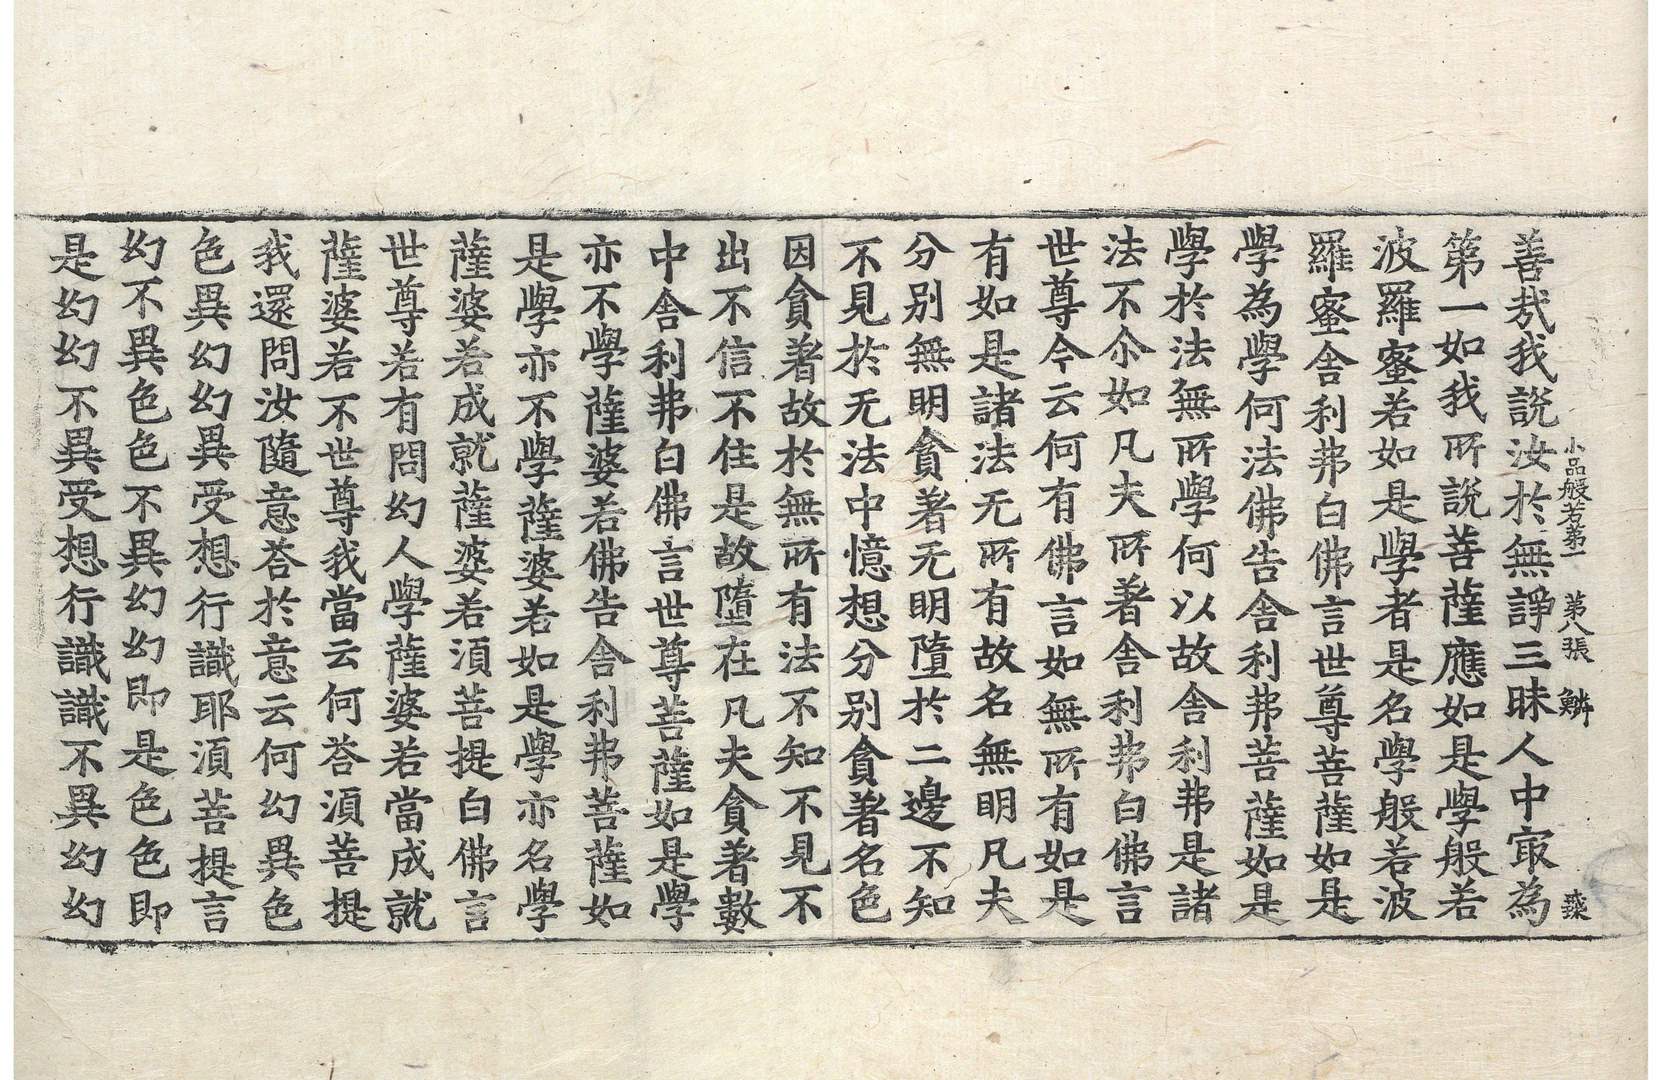 小品般若第一 第八張 鱗
善㦲我說汝於無諍三昧人中㝡為
第一如我所說菩薩應如是學般若
波羅蜜若如是學者是名學般若波
羅蜜舍利弗白佛言世尊菩薩如是
學為學何法佛告舍利弗菩薩如是
學於法無所學何以故舍利弗是諸
法不尒如凡夫所著舍利弗白佛言
世尊今云何有佛言如無所有如是
有如是諸法无所有故名無明凡夫
分别無明貪著无明墮於二邊不知
不見於无法中憶想分别貪著名色
因貪著故於無所有法不知不見不
出不信不住是故墮在凡夫貪著數
中舍利弗白佛言世尊菩薩如是學
亦不學薩婆若佛告舍利弗菩薩如
是學亦不學薩婆若如是學亦名學
薩婆若成就薩婆若湏菩提白佛言
世尊若有問幻人學薩婆若當成就
薩婆若不世尊我當云何荅湏菩提
我還問汝隨意荅於意云何幻異色
色異幻幻異受想行識耶湏菩提言
幻不異色色不異幻幻即是色色即
是幻幻不異受想行識識不異幻幻